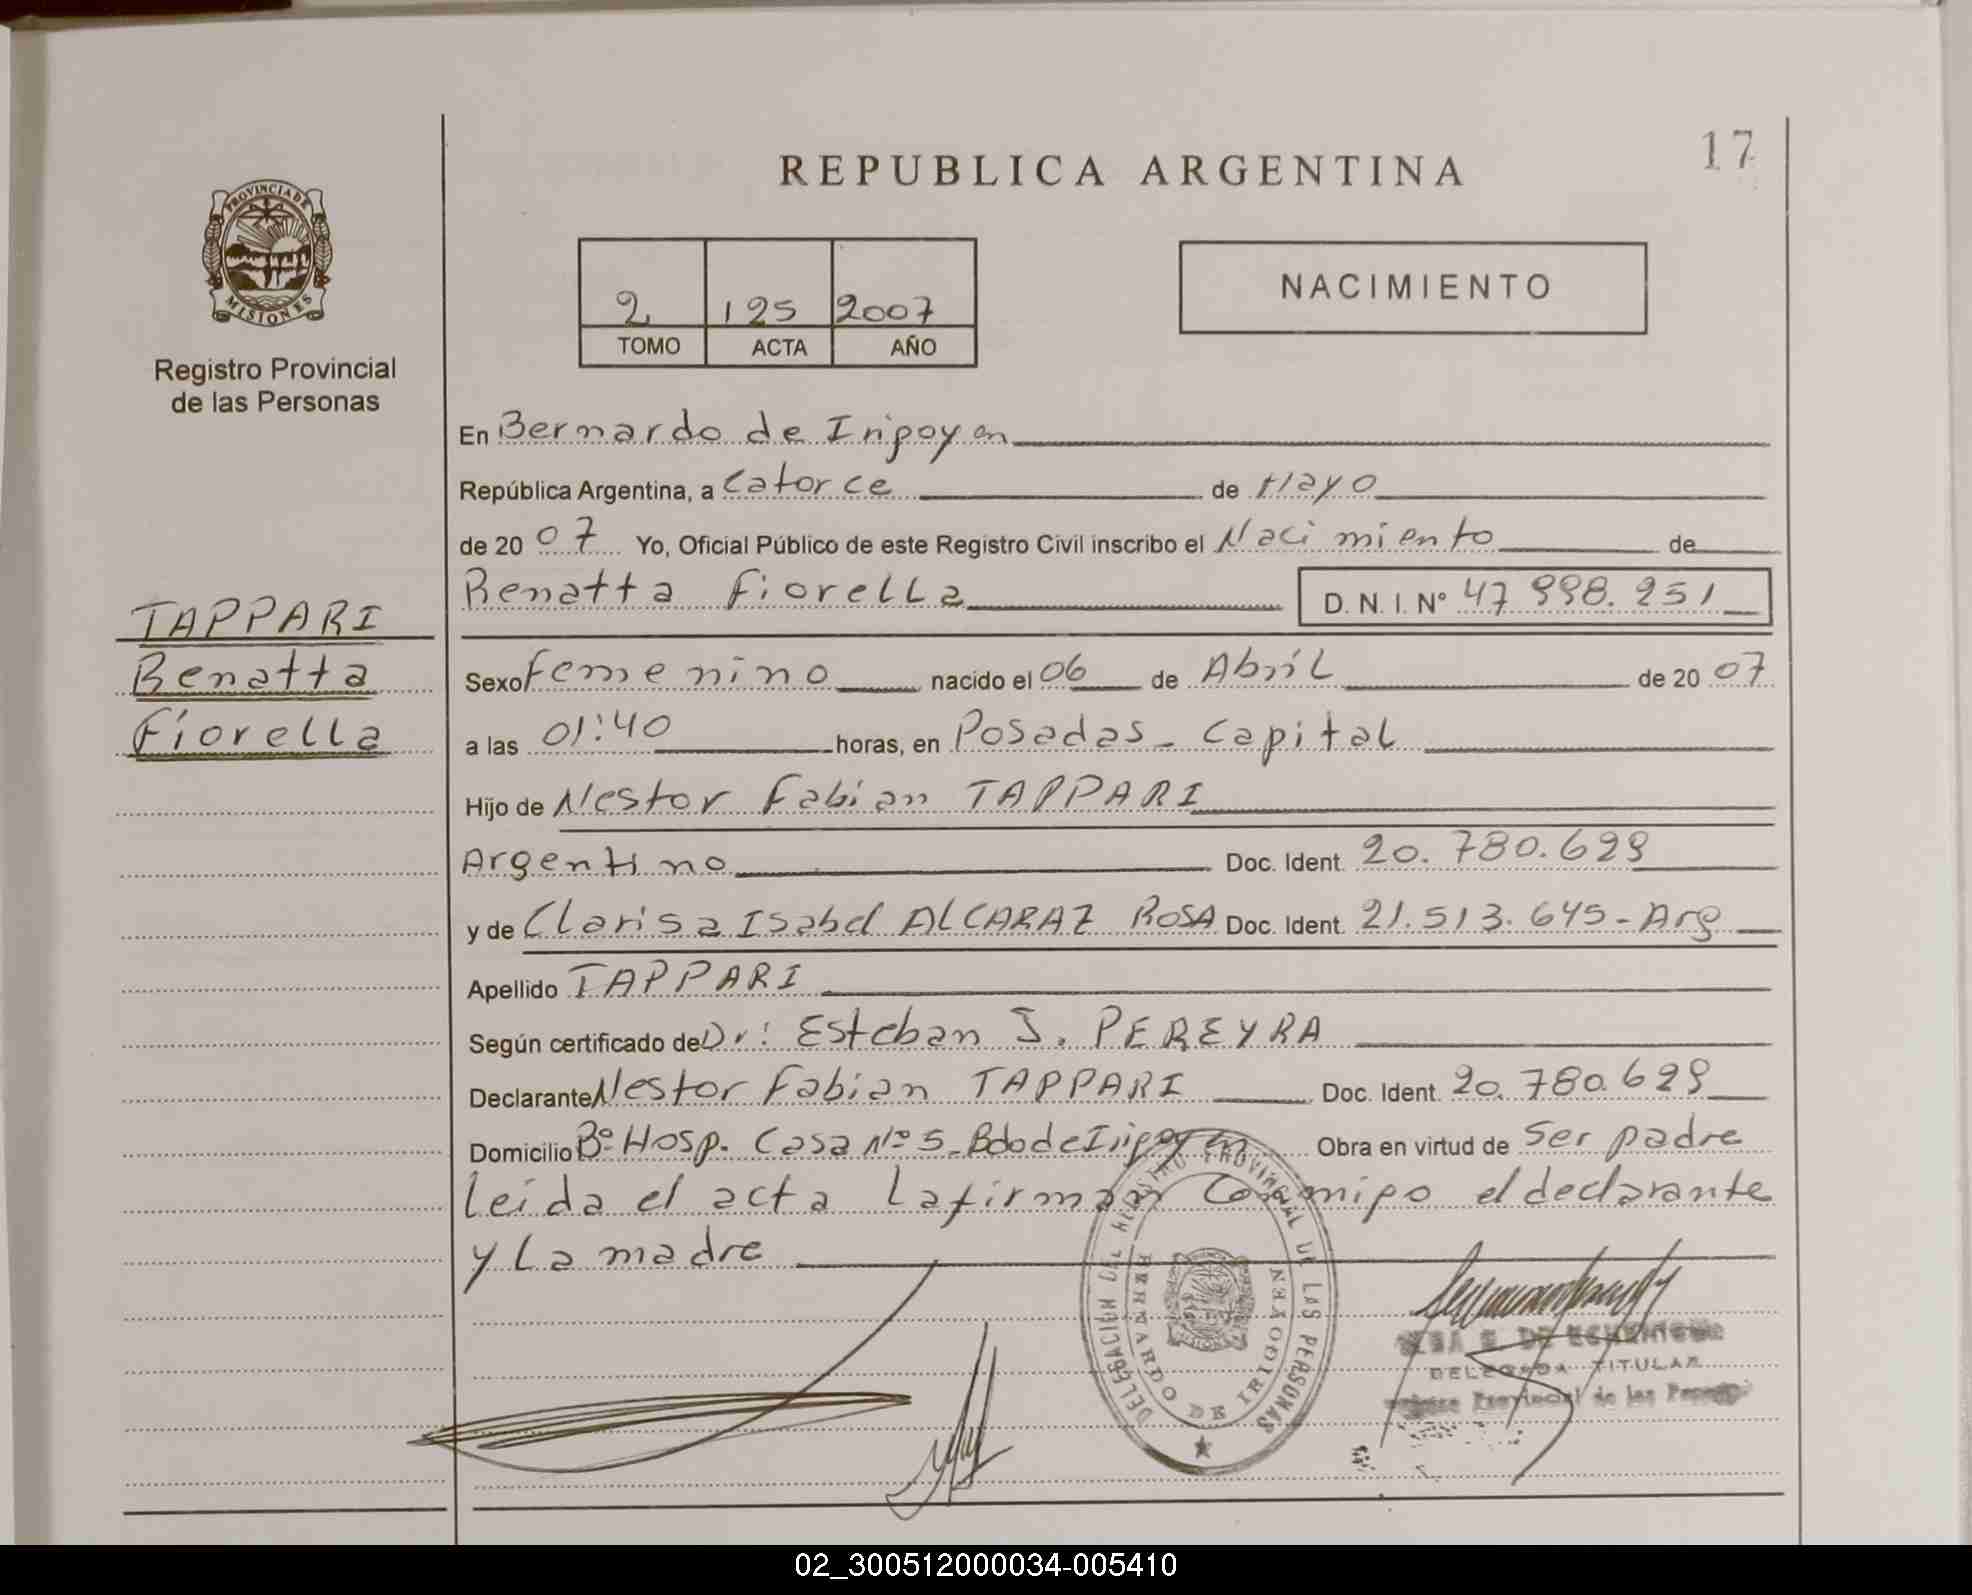 REPUBLICA ARGENTINA
17
PROVINCIA DE
MISIONES
Registro Provincial
de las Personas
2 125 2007
TOMO ACTA AÑO
NACIMIENTO
En Bernardo de Irigoyen
República Argentina, a Catorce de Mayo
de 20 07 Yo, Oficial Público de este Registro Civil inscribo el Nacimiento de
Renatta Fiorella D. N. I. Nº 47 998.251
TAPPARI
Renatta
Fiorella
Sexo Femenino nacido el 06 de Abril de 20 07
a las 01:40 horas, en Posadas - Capital
Hijo de Nestor Fabian TAPPARI
Argentino Doc. Ident. 20.780.629
y de Clarisa Isabel ALCARAZ ROSA Doc. Ident. 21.513.645 - Arg
Apellido TAPPARI
Según certificado de Dr: Esteban J. PEREYRA
Declarante Nestor Fabian TAPPARI Doc. Ident. 20.780.629
Domicilio Bº Hosp. Casa Nº 5 - Bdo de Irigoyen Obra en virtud de Ser padre
Leida el acta La firman Conmigo el declarante
y La madre
DELEGACION DEL REGISTRO PROVINCIAL DE LAS PERSONAS
BERNARDO DE IRIGOYEN
DELEGADA TITULAR
Provincial de las
02_300512000034-005410